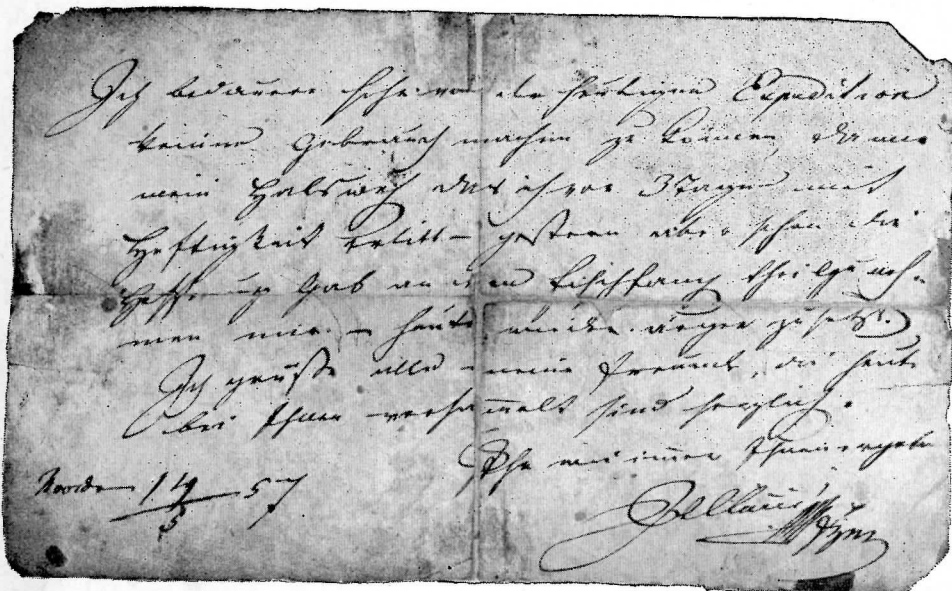 Ich bedauere sehr von der heutigen Expedition
keinen Gebrauch machen zu können, da mir
mein Halsweh das ich vor 3 Tagen mit
Heftigkeit erlitt – gestern aber schon die
Hoffnung gab an dem Fischfang theilzuneh-
men mir – heute wieder ärger zusetzt.
Ich grüße alle meine Freunde, die heute
bei Ihnen versammelt sind herzlich.
Ihr wie immer Ihnen ergebe
14/5 57